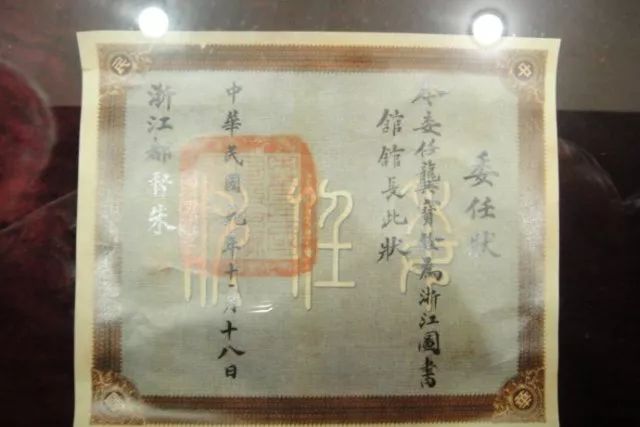 委任狀
今委任龔寶銓為浙江圖書
館館長此狀
中華民國元年十一月十八日
浙江都督朱